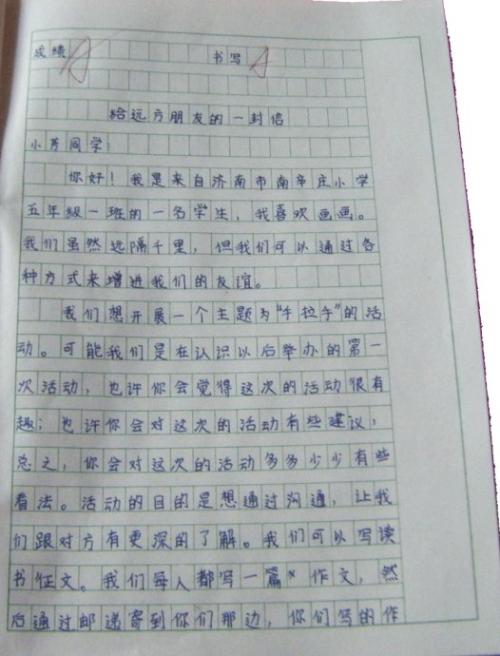 成绩 A 书写 A
给远方朋友的一封信
小芳同学：
你好！我是来自济南市南辛庄小学
五年级一班的一名学生，我喜欢画画。
我们虽然远隔千里，但我们可以通过各
种方式来增进我们的友谊。
我们想开展一个主题为“手拉手”的活
动。可能我们是在认识以后举办的第一
次活动，也许你会觉得这次的活动很有
趣；也许你会对这次的活动有些建议，
总之，你会对这次的活动多多少少有些
看法。活动的目的是想通过沟通，让我
们跟对方有更深的了解。我们可以写读
书征文。我们每人都写一篇 作文，然
后通过邮递寄到你们那边，你们写的作